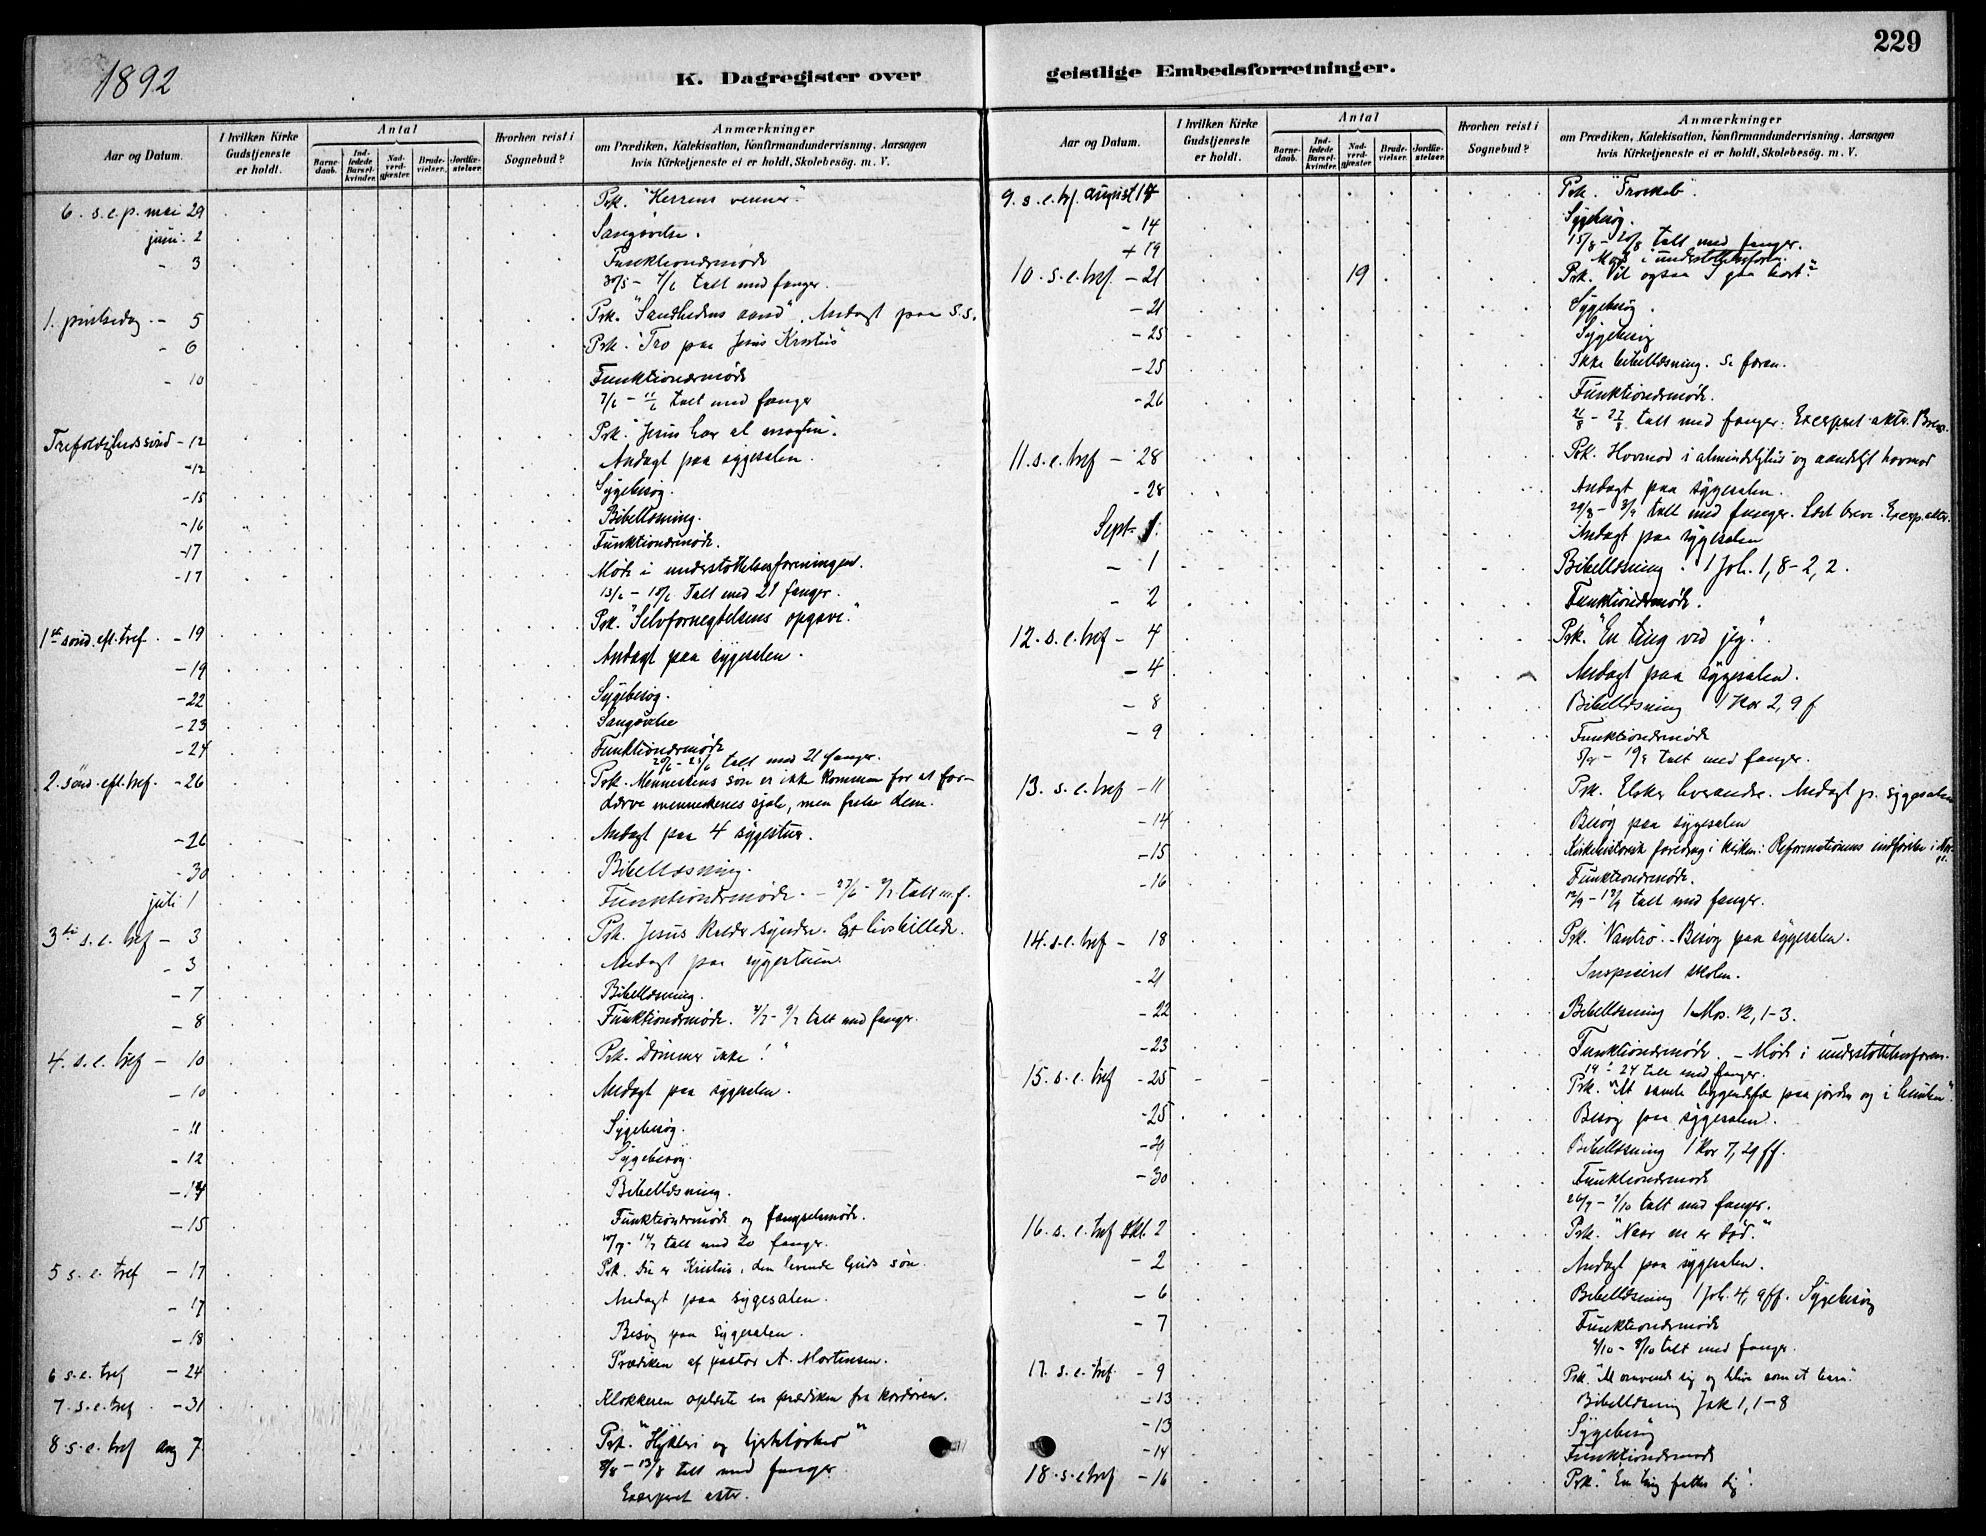 229
1892
K. Dagregister over
geistlige Embedsforretninger.
Aar og Datum.
I hvilken Kirke Gudstjeneste er holdt.
Antal
Barnedaab.
Indledede Barselkvinder.
Nadverdgjæster.
Brudevielser.
Jordfæstelser.
Hvorhen reist i Sognebud?
Anmærkninger
om Prædiken, Katekisation, Konfirmandundervisning, Aarsagen
hvis Kirketjeneste ei er holdt, Skolebesög. m. V.
6. s. e. p. mai 29 Prk. "Herrens venner"
juni 2 Sangövelse.
- 3 Funktionærmöde
30/5 - 4/6 talt med fanger.
1. pintsedag - 5 Prk. "Sandhedens aand". Andagt paa S.s.
- 6 Prk. "Tro paa Jesus Kristus"
- 10 Funktionærmöde
7/6 - 11/6 talt med fanger
Trefoldighedssönd - 12 Prk. "Jesus har al magten".
- 12 Andagt paa sygesalen.
- 15 Sygebesög.
- 16 Bibellæsning.
- 17 Funktionærmöde.
- 17 Möde i understöttelsesforeningen.
13/6 - 18/6 Talt med 21 fanger.
1ste sönd. eft. tref. - 19 Prk. "Selvfornegtelsens opgave."
- 19 Andagt paa sygesalen.
- 22 Sygebesög.
- 23 Sangövelse
- 24 Funktionærmöde
20/6 - 25/6 talt med 21 fanger.
2. sönd. eft. tref. - 26 Prk. Menneskens sön er ikke kommen for at for-
dærve menneskenes sjæle, men frelse dem.
- 26 Andagt paa 4 sygestuer.
- 30 Bibellæsning.
juli 1 Funktionærmöde - 27/6 - 2/7 talt m. f.
3die s. e. tref - 3 Prk. Jesus kalder syndere. Et livsbillede.
- 3 Andagt paa sygestuen
- 7 Bibellæsning.
- 8 Funktionærmöde. 4/7 - 9/7 talt med fanger.
4. s. e. tref - 10 Prk. "Dömmer ikke!"
- 10 Andagt paa sygesalen.
- 11 Sygebesög.
- 12 Sygebesög.
- 14 Bibellæsning.
- 15 Funktionærmöde og fængselsmöde.
talt med 20 fanger.
5 s. e. tref - 17 Prk. Du er Kristus, den levende Guds sön.
- 17 Andagt paa sygesalen.
- 18 Besög paa sygesalen.
6 s. e. tref - 24 Prædiken af pastor A. Mortensen.
7. s. e. tref. - 31 Klokkeren oplæste en prædiken fra kordören.
8 s. e. tref aug 7. Prk. "Hykleri og hjerteloshed"
8/8 - 13/8 talt med fanger.
Excerperet akter.
Aar og Datum.
I hvilken Kirke Gudstjeneste er holdt.
Antal
Barnedaab.
Indledede Barselkvinder.
Nadverdgjæster.
Brudevielser.
Jordfæstelser.
Hvorhen reist i Sognebud?
Anmærkninger
om Prædiken, Katekisation, Konfirmandundervisning, Aarsagen
hvis Kirketjeneste ei er holdt, Skolebesög. m. V.
9. s. e. tref. august 14 Prk. "Troskab"
- 14 Sygebesög.
15/8 - 20/8 talt med fanger.
+ 19 Möde i understöttelsesforen.
10. s. e. tref. - 21 19 Prk. Vil ogsaa I gaa bort?
- 21 Sygebesög.
- 25 Sygebesög
- 25 Ikke bibellæsning. Se foran.
- 26 Funktionærmöde.
talt med fanger. Excerperet akter. Breve.
11. s. e. tref - 28 Prk. Hovmod i almindelighed og aandeligt hovmod
- 28 Andagt paa sygesalen.
29/8 - 3/9 talt med fanger. Læst breve. Excerp. akter.
Sept. 1. Andagt paa sygesalen
- 1 Bibellæsning. 1 Joh. 1, 8-2, 2.
- 2 Funktionærmöde.
12. s. e. tref - 4 Prk. "En ting ved jeg".
- 4 Andagt paa sygesalen.
- 8 Bibellæsning 1 Kor 2, 9 f
- 9 Funktionærmöde
talt med fanger.
13. s. e. tref - 11 Prk. Elsker hverandre. Andagt p. sygesalen
- 14 Besög paa sygesalen
- 15 Kirkehistorisk foredrag i kirken: Reformationens indförelse i Norge.
- 16 Funktionærmöde.
12/9 - 17/9 talt med fanger.
14. s. e. tref - 18 Prk. "Vantro". Besög paa sygesalen.
- 21 Inspiceret skolen.
- 22 Bibellæsning 1 Mos. 12, 1-3.
- 23 Funktionærmöde. - Möde i understöttelsesforen.
19 - 24 talt med fanger.
15. s. e. tref - 25 Prk. "At samle liggendefæ paa jorden og i himlen".
- 25 Besög paa sygesalen.
- 29 Bibellæsning 1 Kor 7, 29 ff.
- 30 Funktionærmöde
26/9 - 1/10 talt med fanger.
16. s. e. tref okt. 2 Prk. "Naar en er död."
- 2 Andagt paa sygesalen.
- 6 Bibellæsning 1 Joh. 4, 9 ff. Sygebesög
- 7 Funktionærmöde
talt med fanger.
17. s. e. tref. - 9 Prk. "At omvende sig og blive som et barn."
- 13 Bibellæsning Jak 1, 1-8
- 13 Sygebesög
- 14 Funktionærmöde
18. s. e tref - 16 Prk. "En ting fattes dig".